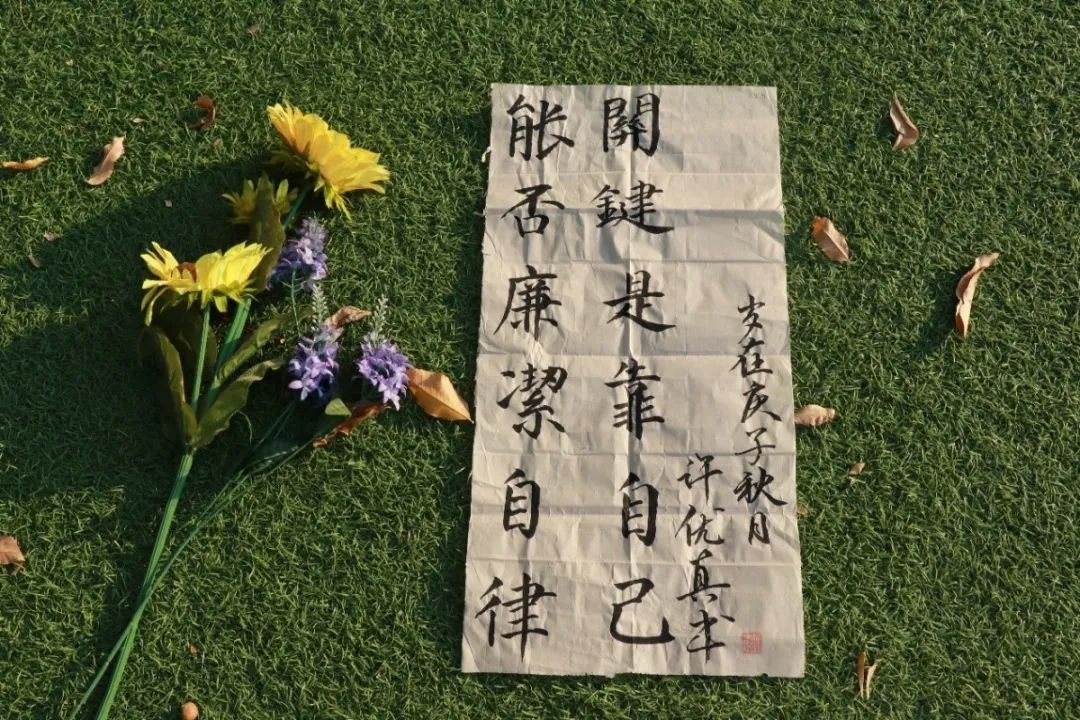 能否廉潔自律
關鍵是靠自己
岁在庚子秋月
许优真书